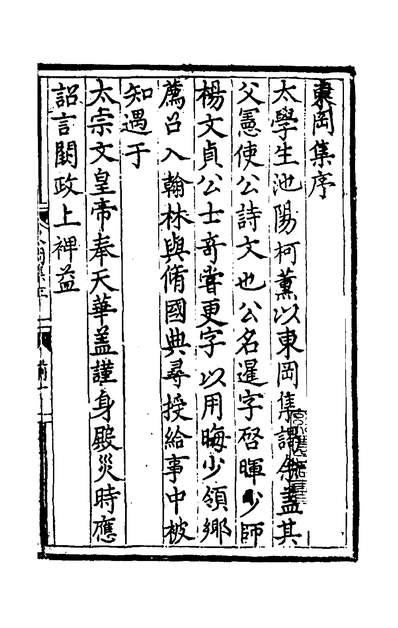 東岡集序
太學生池陽柯薰以東岡集謁余盖其
父憲使公詩文也公名暹字啓暉少師
楊文貞公士竒嘗更字以用晦少領鄉
薦召入翰林與脩國典尋授給事中被
知遇于
太宗文皇帝奉天華盖謹身殿災時應
詔言闕政上裨益